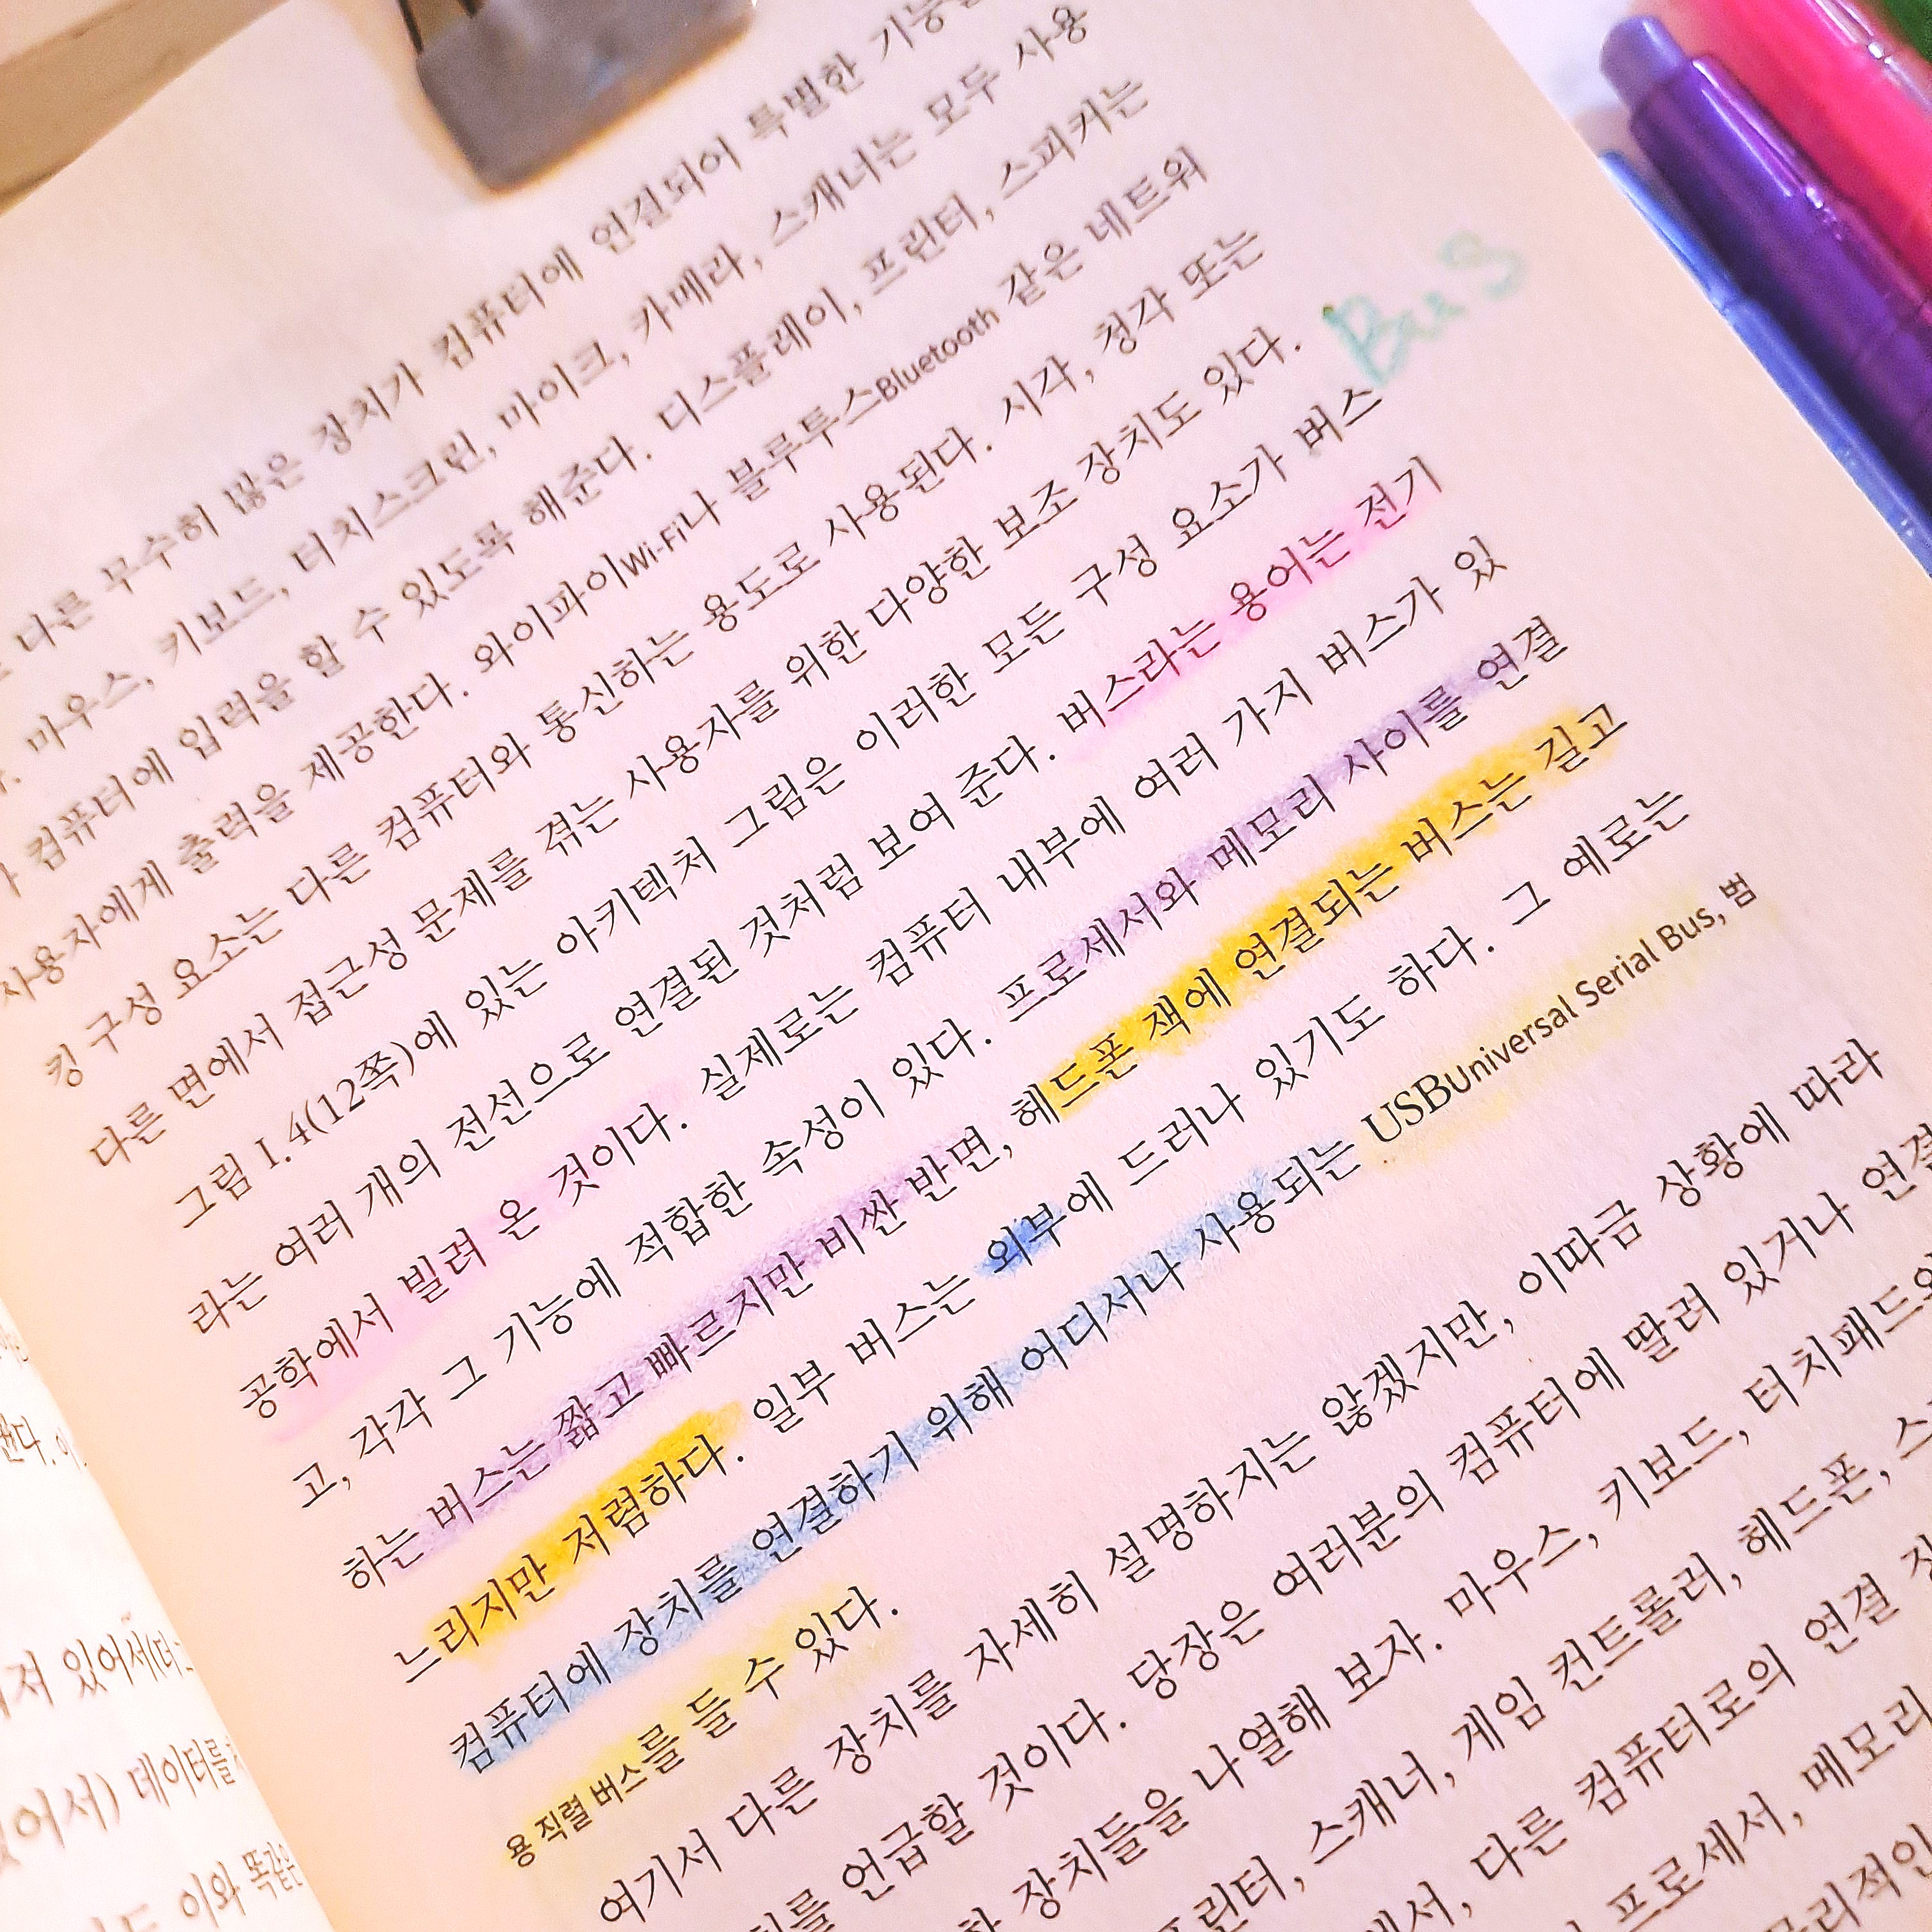 다른 무수히 많은 장치가 컴퓨터에 연결되어 특별한 기능을
마우스, 키보드, 터치스크린, 마이크, 카메라, 스캐너는 모두 사용
컴퓨터에 입력을 할 수 있도록 해준다. 디스플레이, 프린터, 스피커는
사용자에게 출력을 제공한다. 와이파이Wi-Fi나 블루투스Bluetooth 같은 네트워
킹 구성 요소는 다른 컴퓨터와 통신하는 용도로 사용된다. 시각, 청각 또는
다른 면에서 접근성 문제를 겪는 사용자를 위한 다양한 보조 장치도 있다.
Bus
그림 1.4(12쪽)에 있는 아키텍처 그림은 이러한 모든 구성 요소가 버스
라는 여러 개의 전선으로 연결된 것처럼 보여 준다. 버스라는 용어는 전기
공학에서 빌려 온 것이다. 실제로는 컴퓨터 내부에 여러 가지 버스가 있
고, 각각 그 기능에 적합한 속성이 있다. 프로세서와 메모리 사이를 연결
하는 버스는 짧고 빠르지만 비싼 반면, 헤드폰 잭에 연결되는 버스는 길고
느리지만 저렴하다. 일부 버스는 외부에 드러나 있기도 하다. 그 예로는
컴퓨터에 장치를 연결하기 위해 어디서나 사용되는 USBUniversal Serial Bus, 범
용 직렬 버스를 들 수 있다.
여기서 다른 장치를 자세히 설명하지는 않겠지만, 이따금 상황에 따라
를 언급할 것이다. 당장은 여러분의 컴퓨터에 딸려 있거나 연결
장치들을 나열해 보자. 마우스, 키보드, 터치패드와
프린터, 스캐너, 게임 컨트롤러, 헤드폰,
다른 컴퓨터로의 연결
프로세서, 메모리
있어서(더
있어서) 데이터를
이와 똑같은